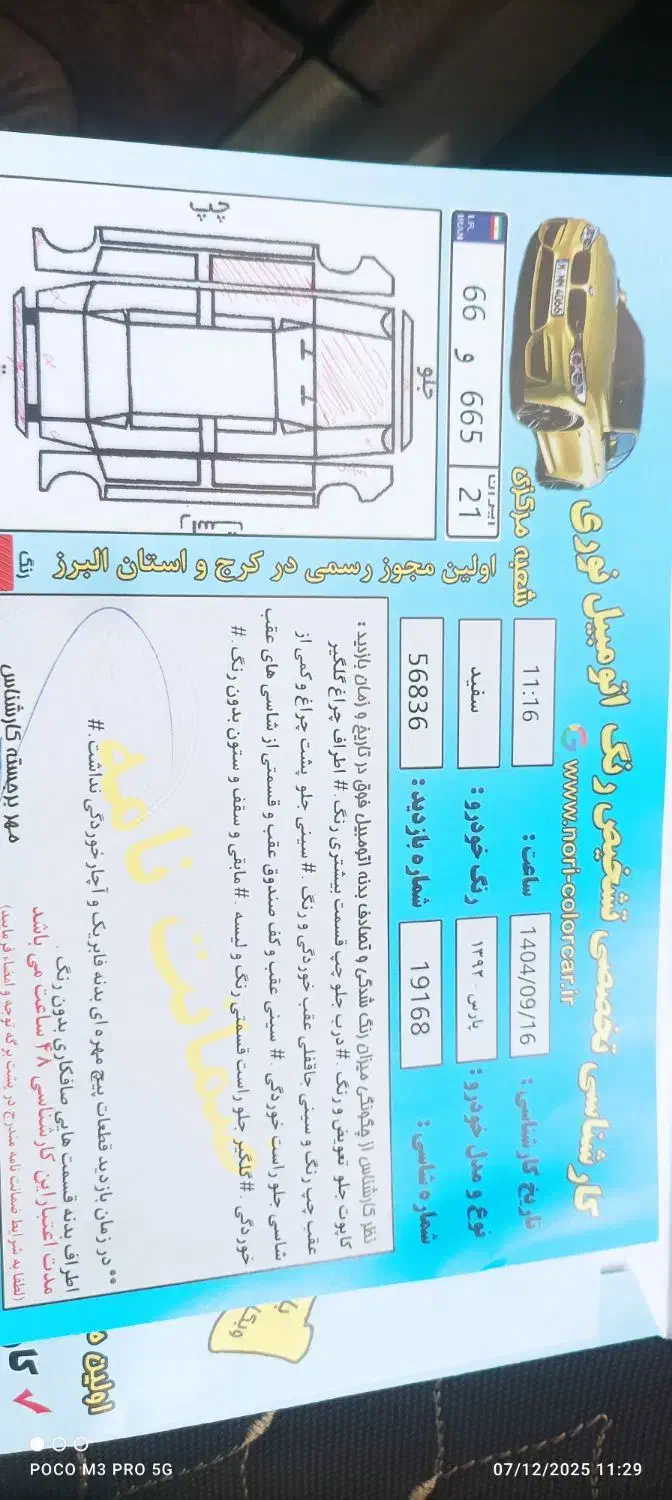 کارشناسی تخصصی تشخیص رنگ اتومبیل نوری
www.nori-colorcar.ir
شعبه مرکزی
تاریخ کارشناسی : 1404/09/16 ساعت : 11:16
نوع و مدل خودرو : پارس - ۱۳۹۲ رنگ خودرو : سفید
شماره شاسی : 19168 شماره بازدید : 56836
I.R. IRAN
66 و 665
ایران 21
اولین مجوز رسمی در کرج و استان البرز
جلو
چپ
رنگ
نظر کارشناس از چگونگی میزان رنگ شدگی و تصادف بدنه اتومبیل فوق در تاریخ و زمان بازدید :
کاپوت جلو تعویض و رنگ. # درب جلو چپ قسمت بیشتری رنگ. # اطراف چراغ گلگیر
عقب چپ رنگ و سینی جاقفلی عقب خوردگی و رنگ. # سینی جلو پشت چراغ و کمی از
شاسی جلو راست خوردگی. # سینی عقب و کف صندوق عقب و قسمتی از شاسی های عقب
خوردگی. # گلگیر جلو راست قسمتی رنگ و لیسه. # مابقی و سقف و ستون بدون رنگ. #
ضمانت نامه
** در زمان بازدید قطعات پیچ مهره ای بدنه فابریک و آچار خوردگی نداشت. #
اطراف بدنه قسمت هایی صافکاری بدون رنگ.
مدت اعتبار این کارشناسی ۴۸ ساعت می باشد
(لطفا به شرایط ضمانت نامه مندرج در پشت برگه توجه و امضاء فرمایید)
مهر برجسته کارشناس
اولین
POCO M3 PRO 5G
07/12/2025 11:29